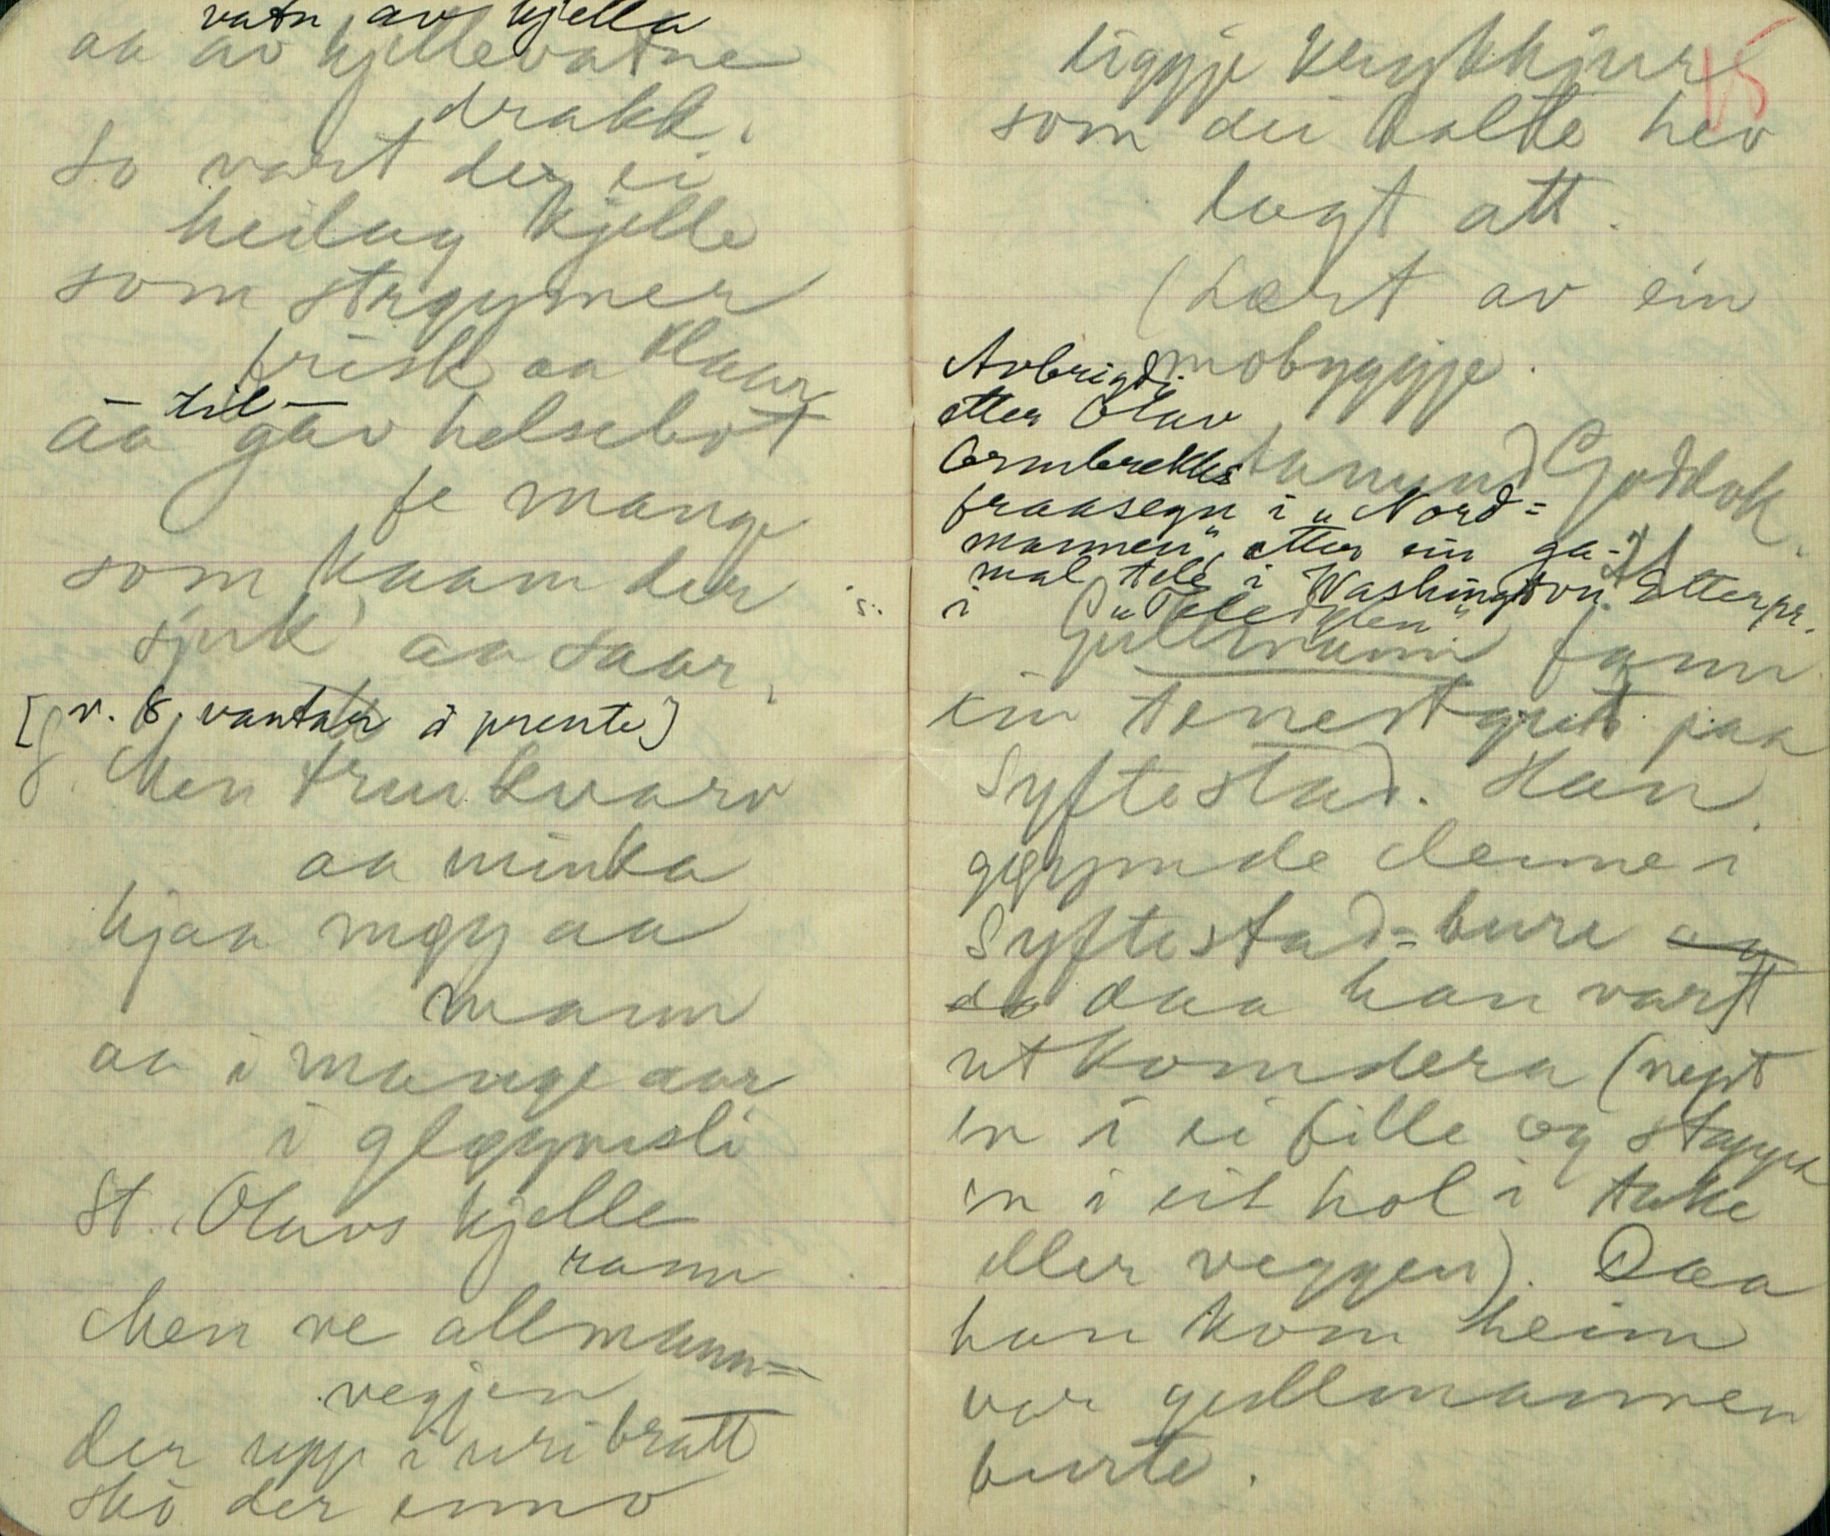 vatn av kjella
aa av kjellevatne
drakk.
So vart der ei
heilag kjelle
som strøymer
frisk aa klaar
— til —
aa gav helsebot
fe mange
som kaam der
sjuk aa saar.
[v. 8 vantar i prente]
8. Men trui kvarv
aa minka
hjaa møy aa
mann
aa i mange aar
i gløymsli
St. Olavs kjelle
rann
Men ve allmann=
vegjen
der upp i uri bratt
sko der enno
15
liggje
som dei halte hev
lagt att.
(Lært av ein
mobyggje.
Avbrigdi
etter Olav
Ormbrekks
fraasegn i "Nord=
mannen", etter ein ga-
mal tele i Washington. Etterpr.
i "Teledølen"
Aanund Goddok.
Gullmann fann
ein tenestgut paa
Syftestad. Han
gøymde denne i
Syftestad=bure og
da daa han vart
utkomdera (vept
en i ei fille og stappa
en i eit hol i take
eller veggen). Daa
han kom heim
var gullmannen
burte.